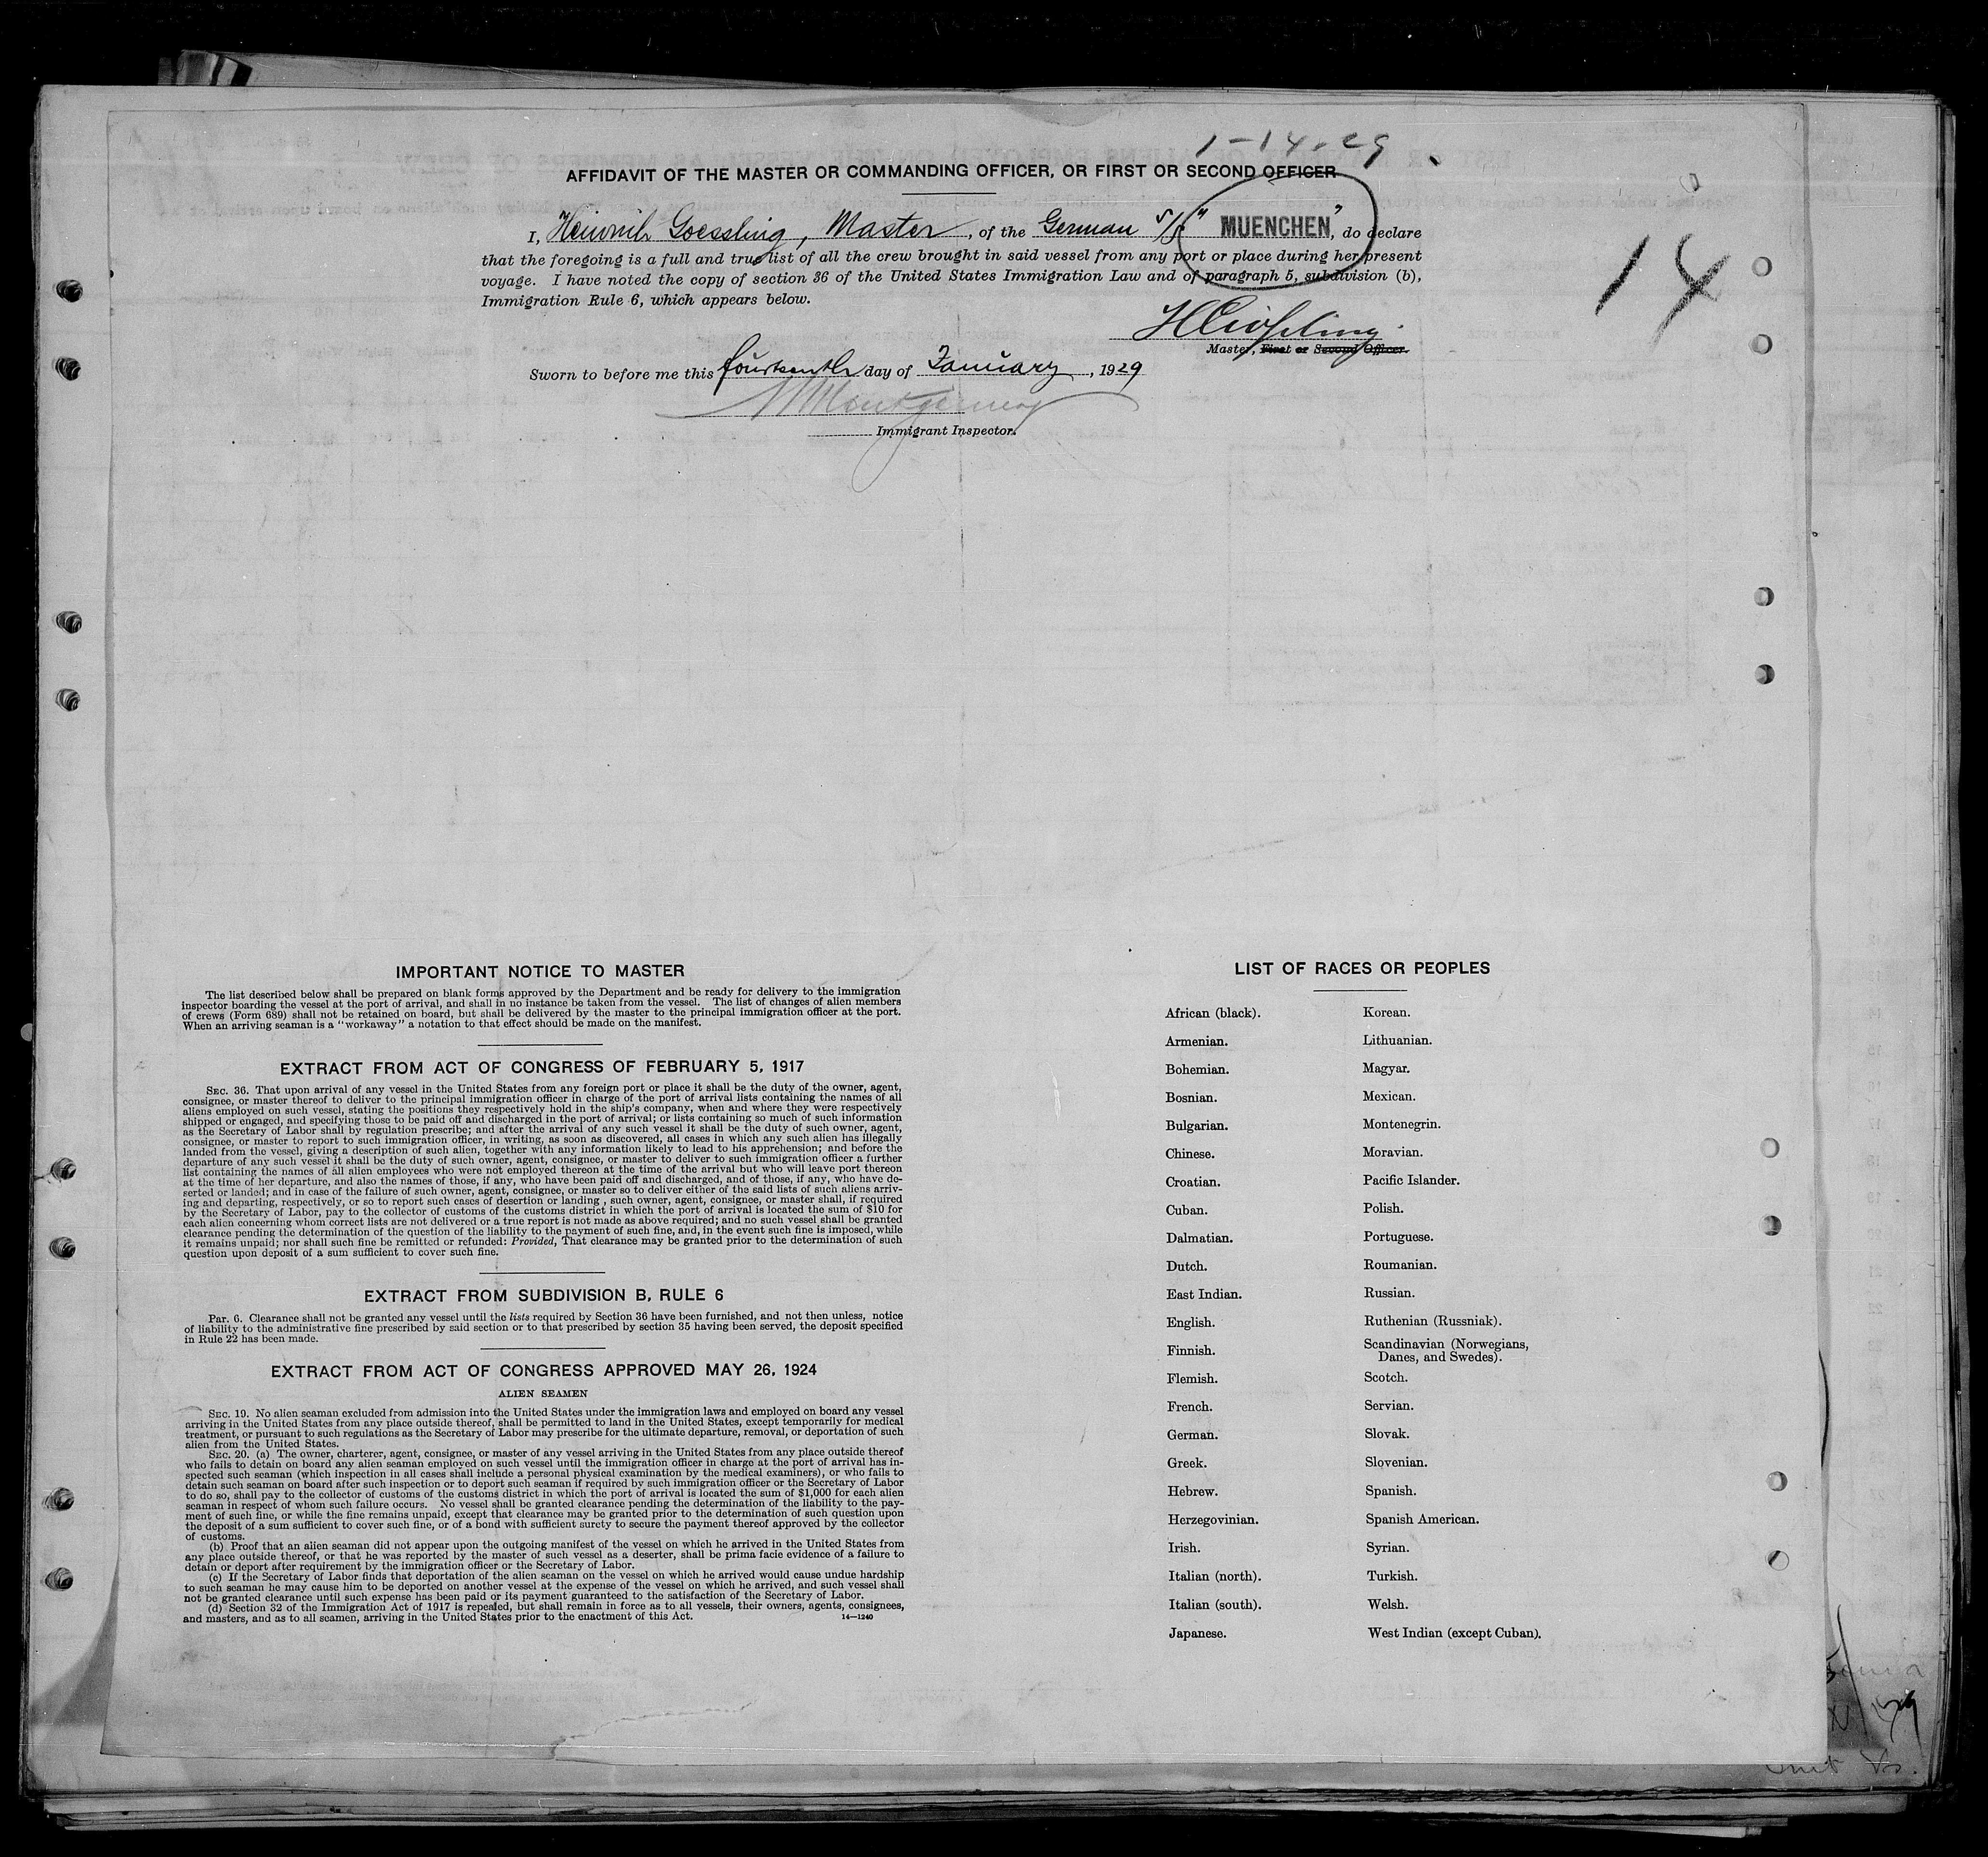 1-14-29
AFFIDAVIT OF THE MASTER OR COMMANDING OFFICER, OR FIRST OR SECOND OFFICER
I, Heinrich Goessling, Master, of the German S/S "MUENCHEN", do declare
that the foregoing is a full and true list of all the crew brought in said vessel from any port or place during her present
voyage. I have noted the copy of section 36 of the United States Immigration Law and of paragraph 5, subdivision (b),
Immigration Rule 6, which appears below.
14
HGoessling
Master, First or Second Officer.
Sworn to before me this fourteenth day of January, 1929
Montgomery
Immigrant Inspector.
IMPORTANT NOTICE TO MASTER
The list described below shall be prepared on blank forms approved by the Department and be ready for delivery to the immigration
inspector boarding the vessel at the port of arrival, and shall in no instance be taken from the vessel. The list of changes of alien members
of crews (Form 689) shall not be retained on board, but shall be delivered by the master to the principal immigration officer at the port.
When an arriving seaman is a "workaway" a notation to that effect should be made on the manifest.
EXTRACT FROM ACT OF CONGRESS OF FEBRUARY 5, 1917
SEC. 36. That upon arrival of any vessel in the United States from any foreign port or place it shall be the duty of the owner, agent,
consignee, or master thereof to deliver to the principal immigration officer in charge of the port of arrival lists containing the names of all
aliens employed on such vessel, stating the positions they respectively hold in the ship's company, when and where they were respectively
shipped or engaged, and specifying those to be paid off and discharged in the port of arrival; or lists containing so much of such information
as the Secretary of Labor shall by regulation prescribe; and after the arrival of any such vessel it shall be the duty of such owner, agent,
consignee, or master to report to such immigration officer, in writing, as soon as discovered, all cases in which any such alien has illegally
landed from the vessel, giving a description of such alien, together with any information likely to lead to his apprehension; and before the
departure of any such vessel it shall be the duty of such owner, agent, consignee, or master to deliver to such immigration officer a further
list containing the names of all alien employees who were not employed thereon at the time of the arrival but who will leave port thereon
at the time of her departure, and also the names of those, if any, who have been paid off and discharged, and of those, if any, who have de-
serted or landed; and in case of the failure of such owner, agent, consignee, or master so to deliver either of the said lists of such aliens arriv-
ing and departing, respectively, or so to report such cases of desertion or landing , such owner, agent, consignee, or master shall, if required
by the Secretary of Labor, pay to the collector of customs of the customs district in which the port of arrival is located the sum of $10 for
each alien concerning whom correct lists are not delivered or a true report is not made as above required; and no such vessel shall be granted
clearance pending the determination of the question of the liability to the payment of such fine, and, in the event such fine is imposed, while
it remains unpaid; nor shall such fine be remitted or refunded: Provided, That clearance may be granted prior to the determination of such
question upon deposit of a sum sufficient to cover such fine.
EXTRACT FROM SUBDIVISION B, RULE 6
Par. 6. Clearance shall not be granted any vessel until the lists required by Section 36 have been furnished, and not then unless, notice
of liability to the administrative fine prescribed by said section or to that prescribed by section 35 having been served, the deposit specified
in Rule 22 has been made.
EXTRACT FROM ACT OF CONGRESS APPROVED MAY 26, 1924
ALIEN SEAMEN
SEC. 19. No alien seaman excluded from admission into the United States under the immigration laws and employed on board any vessel
arriving in the United States from any place outside thereof, shall be permitted to land in the United States, except temporarily for medical
treatment, or pursuant to such regulations as the Secretary of Labor may prescribe for the ultimate departure, removal, or deportation of such
alien from the United States.
SEC. 20. (a) The owner, charterer, agent, consignee, or master of any vessel arriving in the United States from any place outside thereof
who fails to detain on board any alien seaman employed on such vessel until the immigration officer in charge at the port of arrival has in-
spected such seaman (which inspection in all cases shall include a personal physical examination by the medical examiners), or who fails to
detain such seaman on board after such inspection or to deport such seaman if required by such immigration officer or the Secretary of Labor
to do so, shall pay to the collector of customs of the customs district in which the port of arrival is located the sum of $1,000 for each alien
seaman in respect of whom such failure occurs. No vessel shall be granted clearance pending the determination of the liability to the pay-
ment of such fine, or while the fine remains unpaid, except that clearance may be granted prior to the determination of such question upon
the deposit of a sum sufficient to cover such fine, or of a bond with sufficient surety to secure the payment thereof approved by the collector
of customs.
(b) Proof that an alien seaman did not appear upon the outgoing manifest of the vessel on which he arrived in the United States from
any place outside thereof, or that he was reported by the master of such vessel as a deserter, shall be prima facie evidence of a failure to
detain or deport after requirement by the immigration officer or the Secretary of Labor.
(c) If the Secretary of Labor finds that deportation of the alien seaman on the vessel on which he arrived would cause undue hardship
to such seaman he may cause him to be deported on another vessel at the expense of the vessel on which he arrived, and such vessel shall
not be granted clearance until such expense has been paid or its payment guaranteed to the satisfaction of the Secretary of Labor.
(d) Section 32 of the Immigration Act of 1917 is repealed, but shall remain in force as to all vessels, their owners, agents, consignees,
and masters, and as to all seamen, arriving in the United States prior to the enactment of this Act.
14—1240
LIST OF RACES OR PEOPLES
African (black).
Armenian.
Bohemian.
Bosnian.
Bulgarian.
Chinese.
Croatian.
Cuban.
Dalmatian.
Dutch.
East Indian.
English.
Finnish.
Flemish.
French.
German.
Greek.
Hebrew.
Herzegovinian.
Irish.
Italian (north).
Italian (south).
Japanese.
Korean.
Lithuanian.
Magyar.
Mexican.
Montenegrin.
Moravian.
Pacific Islander.
Polish.
Portuguese.
Roumanian.
Russian.
Ruthenian (Russniak).
Scandinavian (Norwegians,
Danes, and Swedes).
Scotch.
Servian.
Slovak.
Slovenian.
Spanish.
Spanish American.
Syrian.
Turkish.
Welsh.
West Indian (except Cuban).